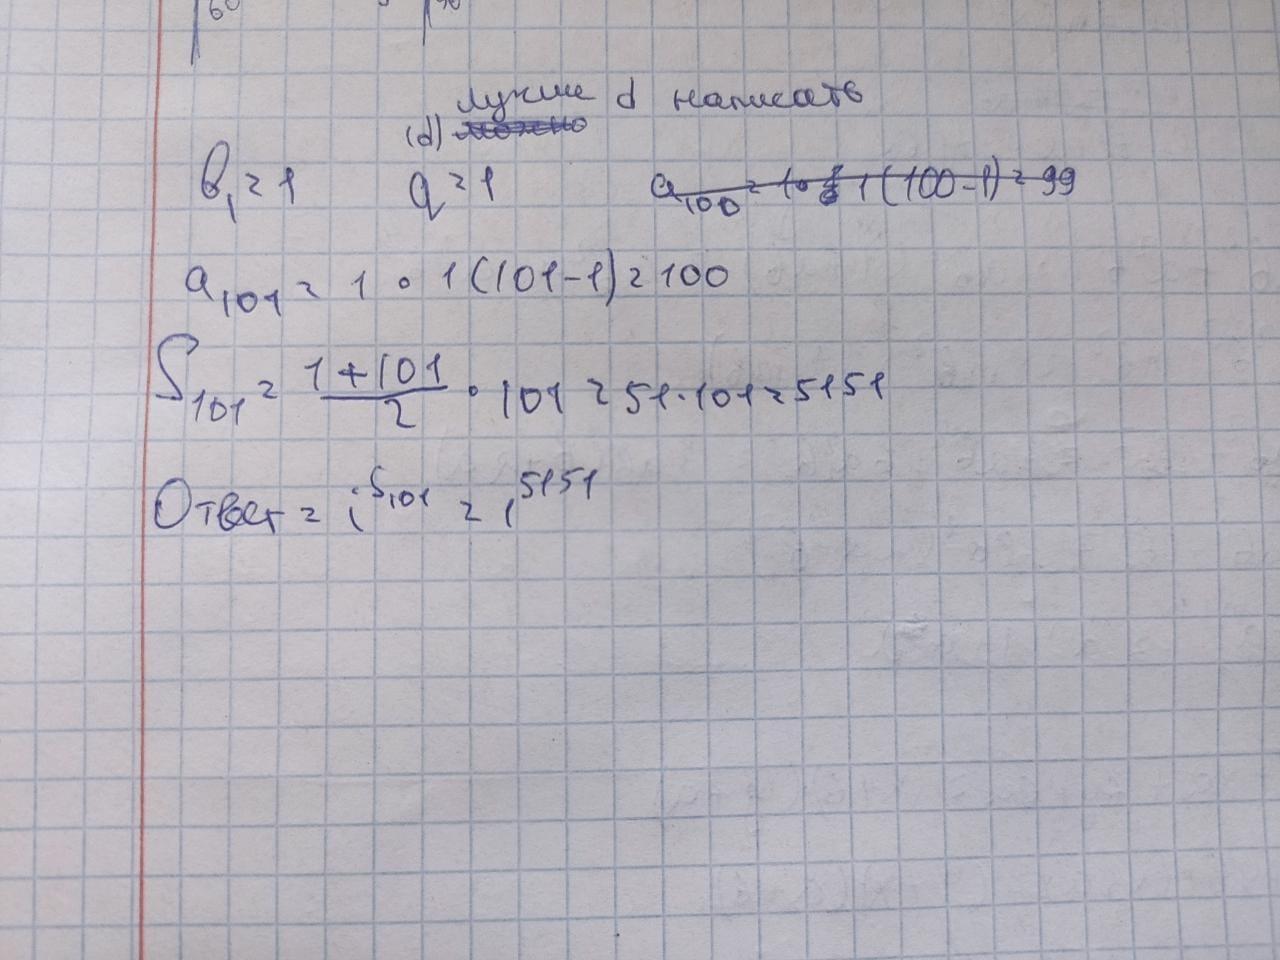 60
лучше d написать
(d)
b₁ = 1 q = 1 a₁₀₀ = 1 · 1(100-1) = 99
a₁₀₁ = 1 · 1(101-1) = 100
S₁₀₁ = (1+101)/2 · 101 = 51·101 = 5151
Ответ = i^S₁₀₁ = i^5151